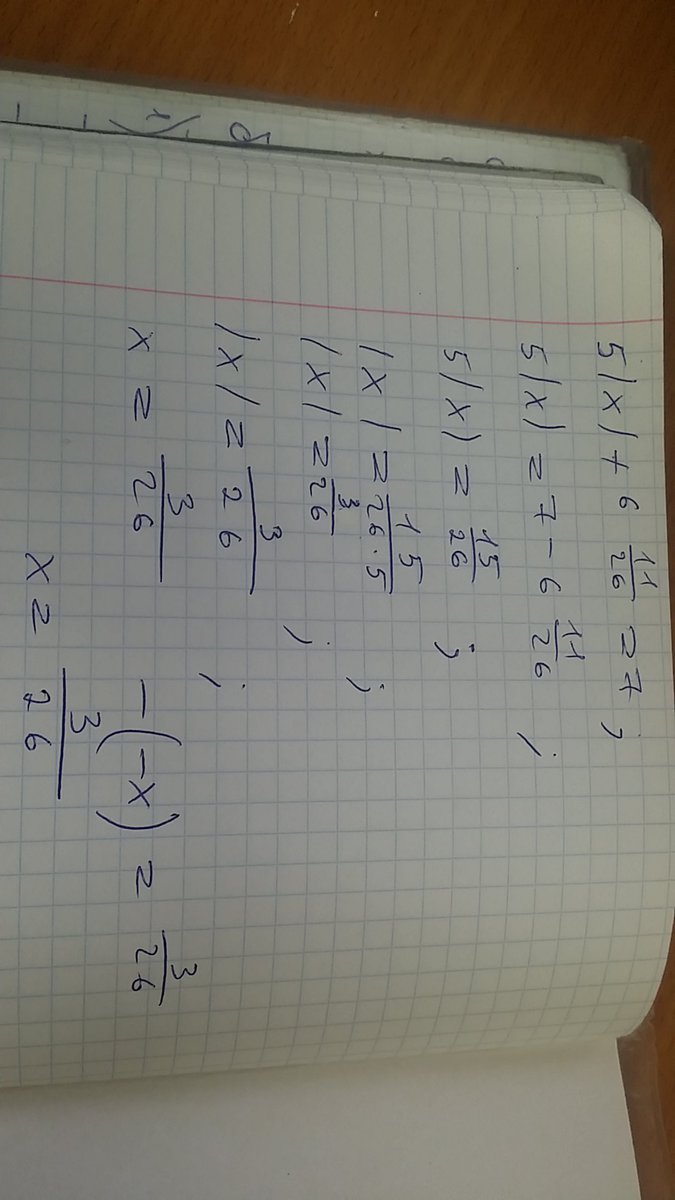 5|x|+6 11/26 = 7 ;
5|x| = 7-6 11/26 ;
5|x| = 15/26 ;
|x| = 15/26·5 ;
|x| = 3/26 ;
|x| = 3/26 ;
x = 3/26 -(-x) = 3/26
x = 3/26